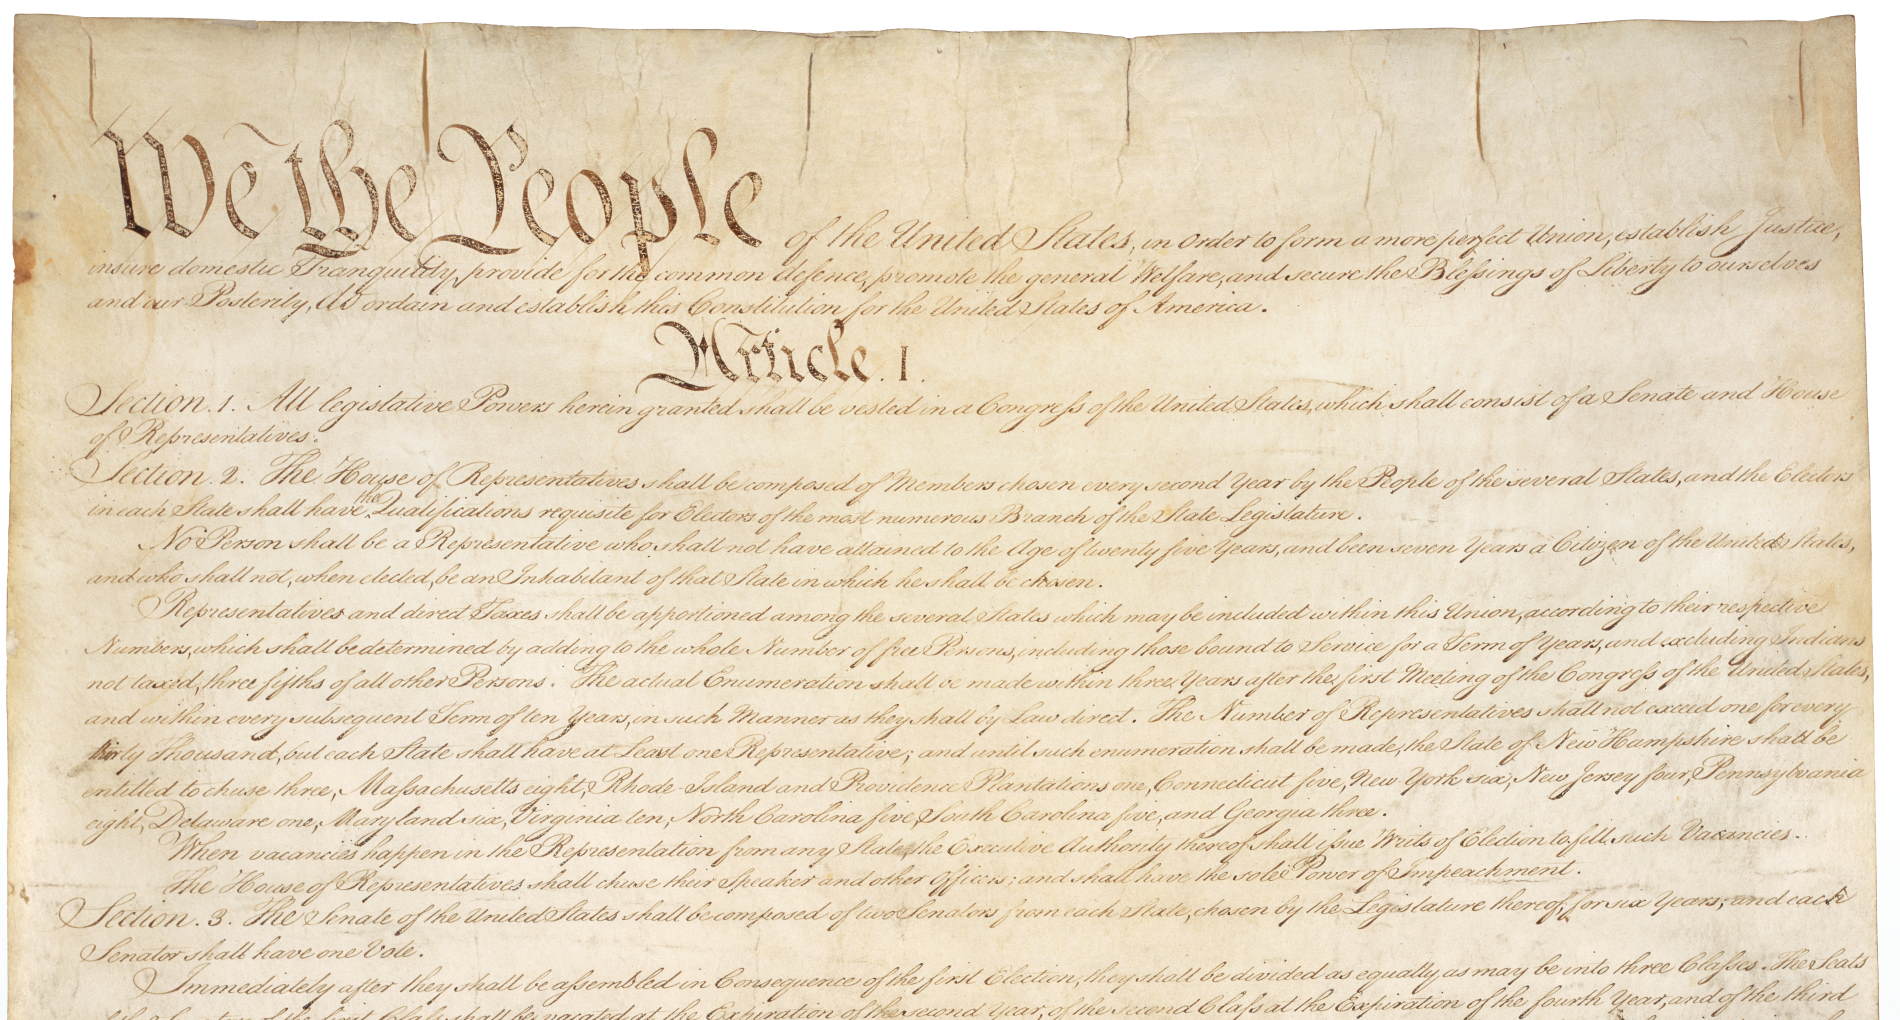 We the People of the United States, in Order to form a more perfect Union, establish Justice,
insure domestic Tranquility, provide for the common defence, promote the general Welfare, and secure the Blessings of Liberty to ourselves
and our Posterity, do ordain and establish this Constitution for the United States of America.
Article. I.
Section. 1. All legislative Powers herein granted shall be vested in a Congress of the United States, which shall consist of a Senate and House
of Representatives.
Section. 2. The House of Representatives shall be composed of Members chosen every second Year by the People of the several States, and the Electors
in each State shall have the Qualifications requisite for Electors of the most numerous Branch of the State Legislature.
No Person shall be a Representative who shall not have attained to the Age of twenty five Years, and been seven Years a Citizen of the United States,
and who shall not, when elected, be an Inhabitant of that State in which he shall be chosen.
Representatives and direct Taxes shall be apportioned among the several States which may be included within this Union, according to their respective
Numbers, which shall be determined by adding to the whole Number of free Persons, including those bound to Service for a Term of Years, and excluding Indians
not taxed, three fifths of all other Persons. The actual Enumeration shall be made within three Years after the first Meeting of the Congress of the United States,
and within every subsequent Term of ten Years, in such Manner as they shall by Law direct. The Number of Representatives shall not exceed one for every
thirty Thousand, but each State shall have at Least one Representative; and until such enumeration shall be made, the State of New Hampshire shall be
entitled to chuse three, Massachusetts eight, Rhode-Island and Providence Plantations one, Connecticut five, New York six, New Jersey four, Pennsylvania
eight, Delaware one, Maryland six, Virginia ten, North Carolina five, South Carolina five, and Georgia three.
When vacancies happen in the Representation from any State, the Executive Authority thereof shall issue Writs of Election to fill such Vacancies.
The House of Representatives shall chuse their Speaker and other Officers; and shall have the sole Power of Impeachment.
Section. 3. The Senate of the United States shall be composed of two Senators from each State, chosen by the Legislature thereof, for six Years; and each
Senator shall have one Vote.
Immediately after they shall be assembled in Consequence of the first Election, they shall be divided as equally as may be into three Classes. The Seats
of the Senators of the first Class shall be vacated at the Expiration of the second Year, of the second Class at the Expiration of the fourth Year, and of the third